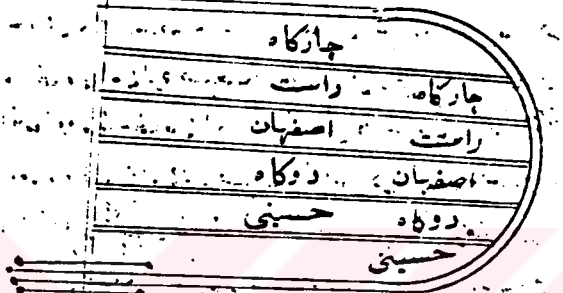 چارکاه
چارکاه راست
راست اصفهان
اصفهان دوکاه
دوکاه حسینی
حسینی